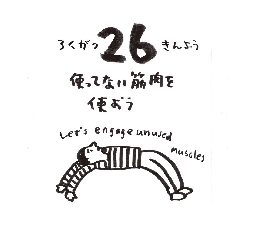 ろくがつ 26 きんよう
使ってない筋肉を
使おう
Let's engage unused
muscles